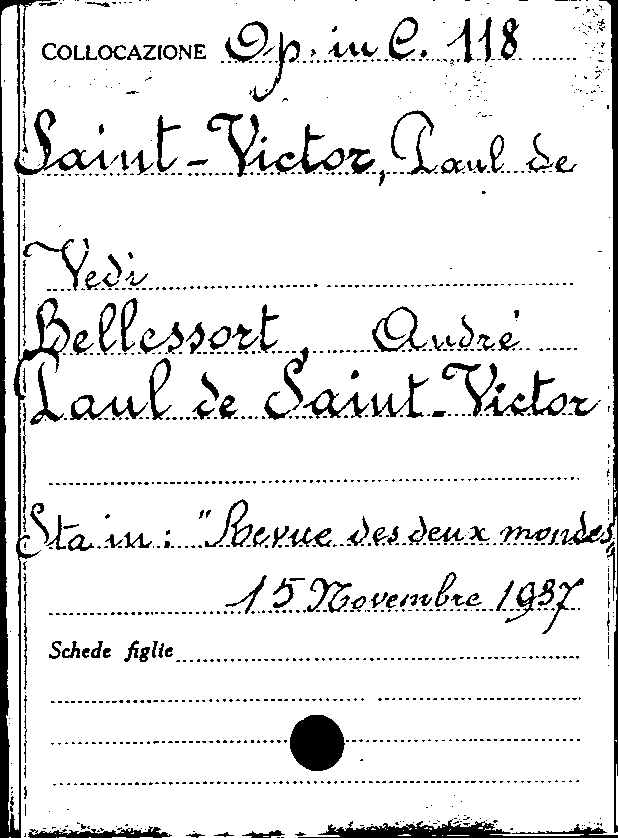 COLLOCAZIONE Op. in C. 118
Saint-Victor, Paul de
Vedi
Bellessort, André
Paul de Saint-Victor
Sta in: "Revue des deux mondes"
15 Novembre 1937
Schede figlie